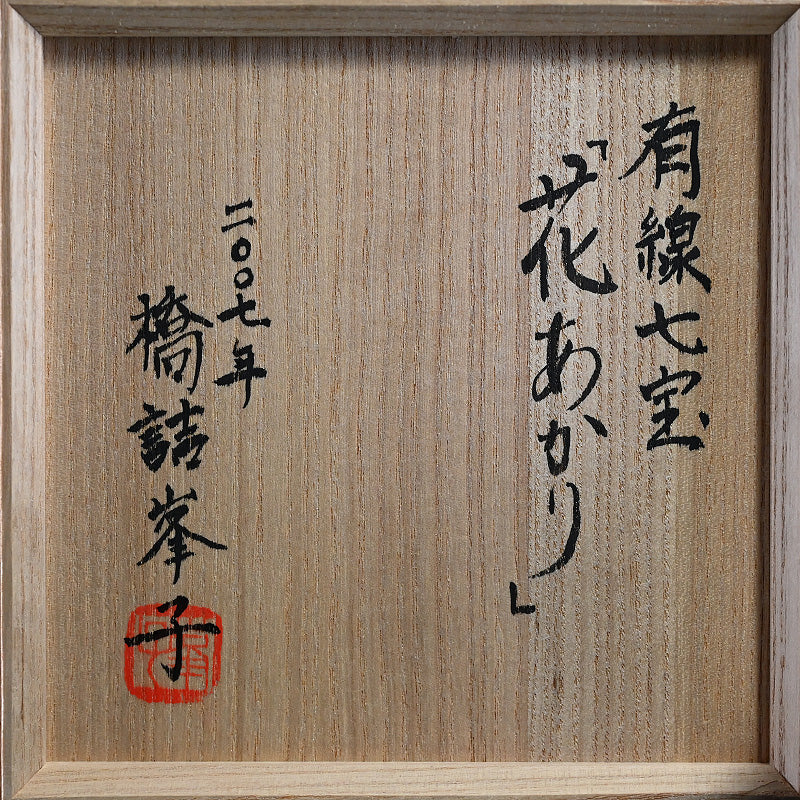 有線七宝
「花あかり」
二〇〇七年
橋詰峯子